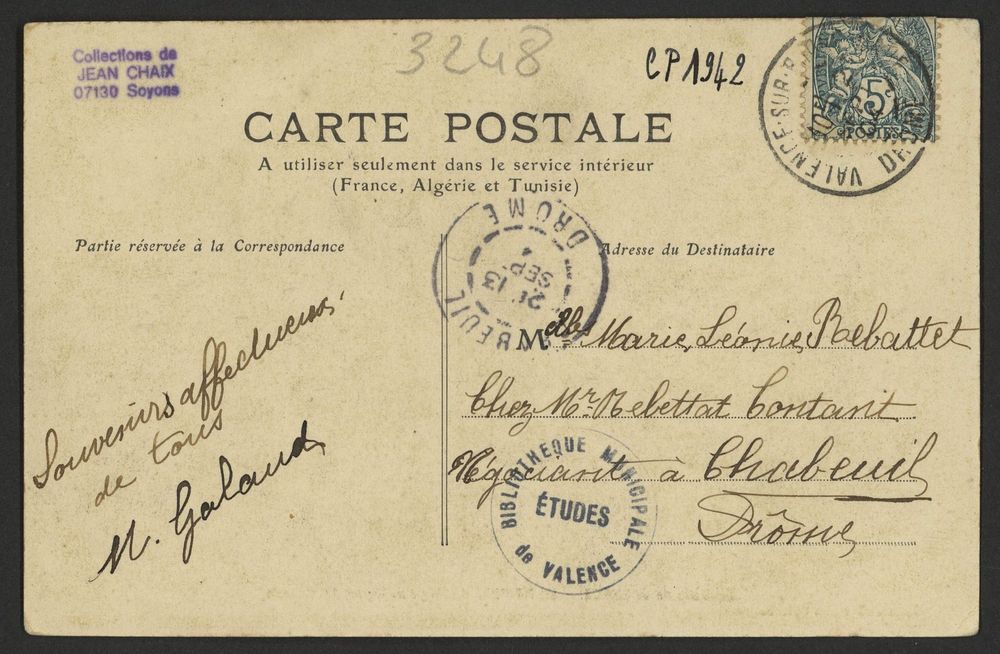 Collections de
JEAN CHAIX
07130 Soyons
3248
CP1942
5
POSTES
VALENCE-SUR-R
CARTE POSTALE
A utiliser seulement dans le service intérieur
(France, Algérie et Tunisie)
DROME
21 13
SEPT
BEUIL
Partie réservée à la Correspondance
Adresse du Destinataire
Souvenirs affectueux
de tous
M. Galand
Mlle Marie, Léonie, Rebattet
Chez Mr. Rebettat Contant
Négociant à Chabeuil
Drôme
BIBLIOTHEQUE MUNICIPALE
ÉTUDES
de VALENCE